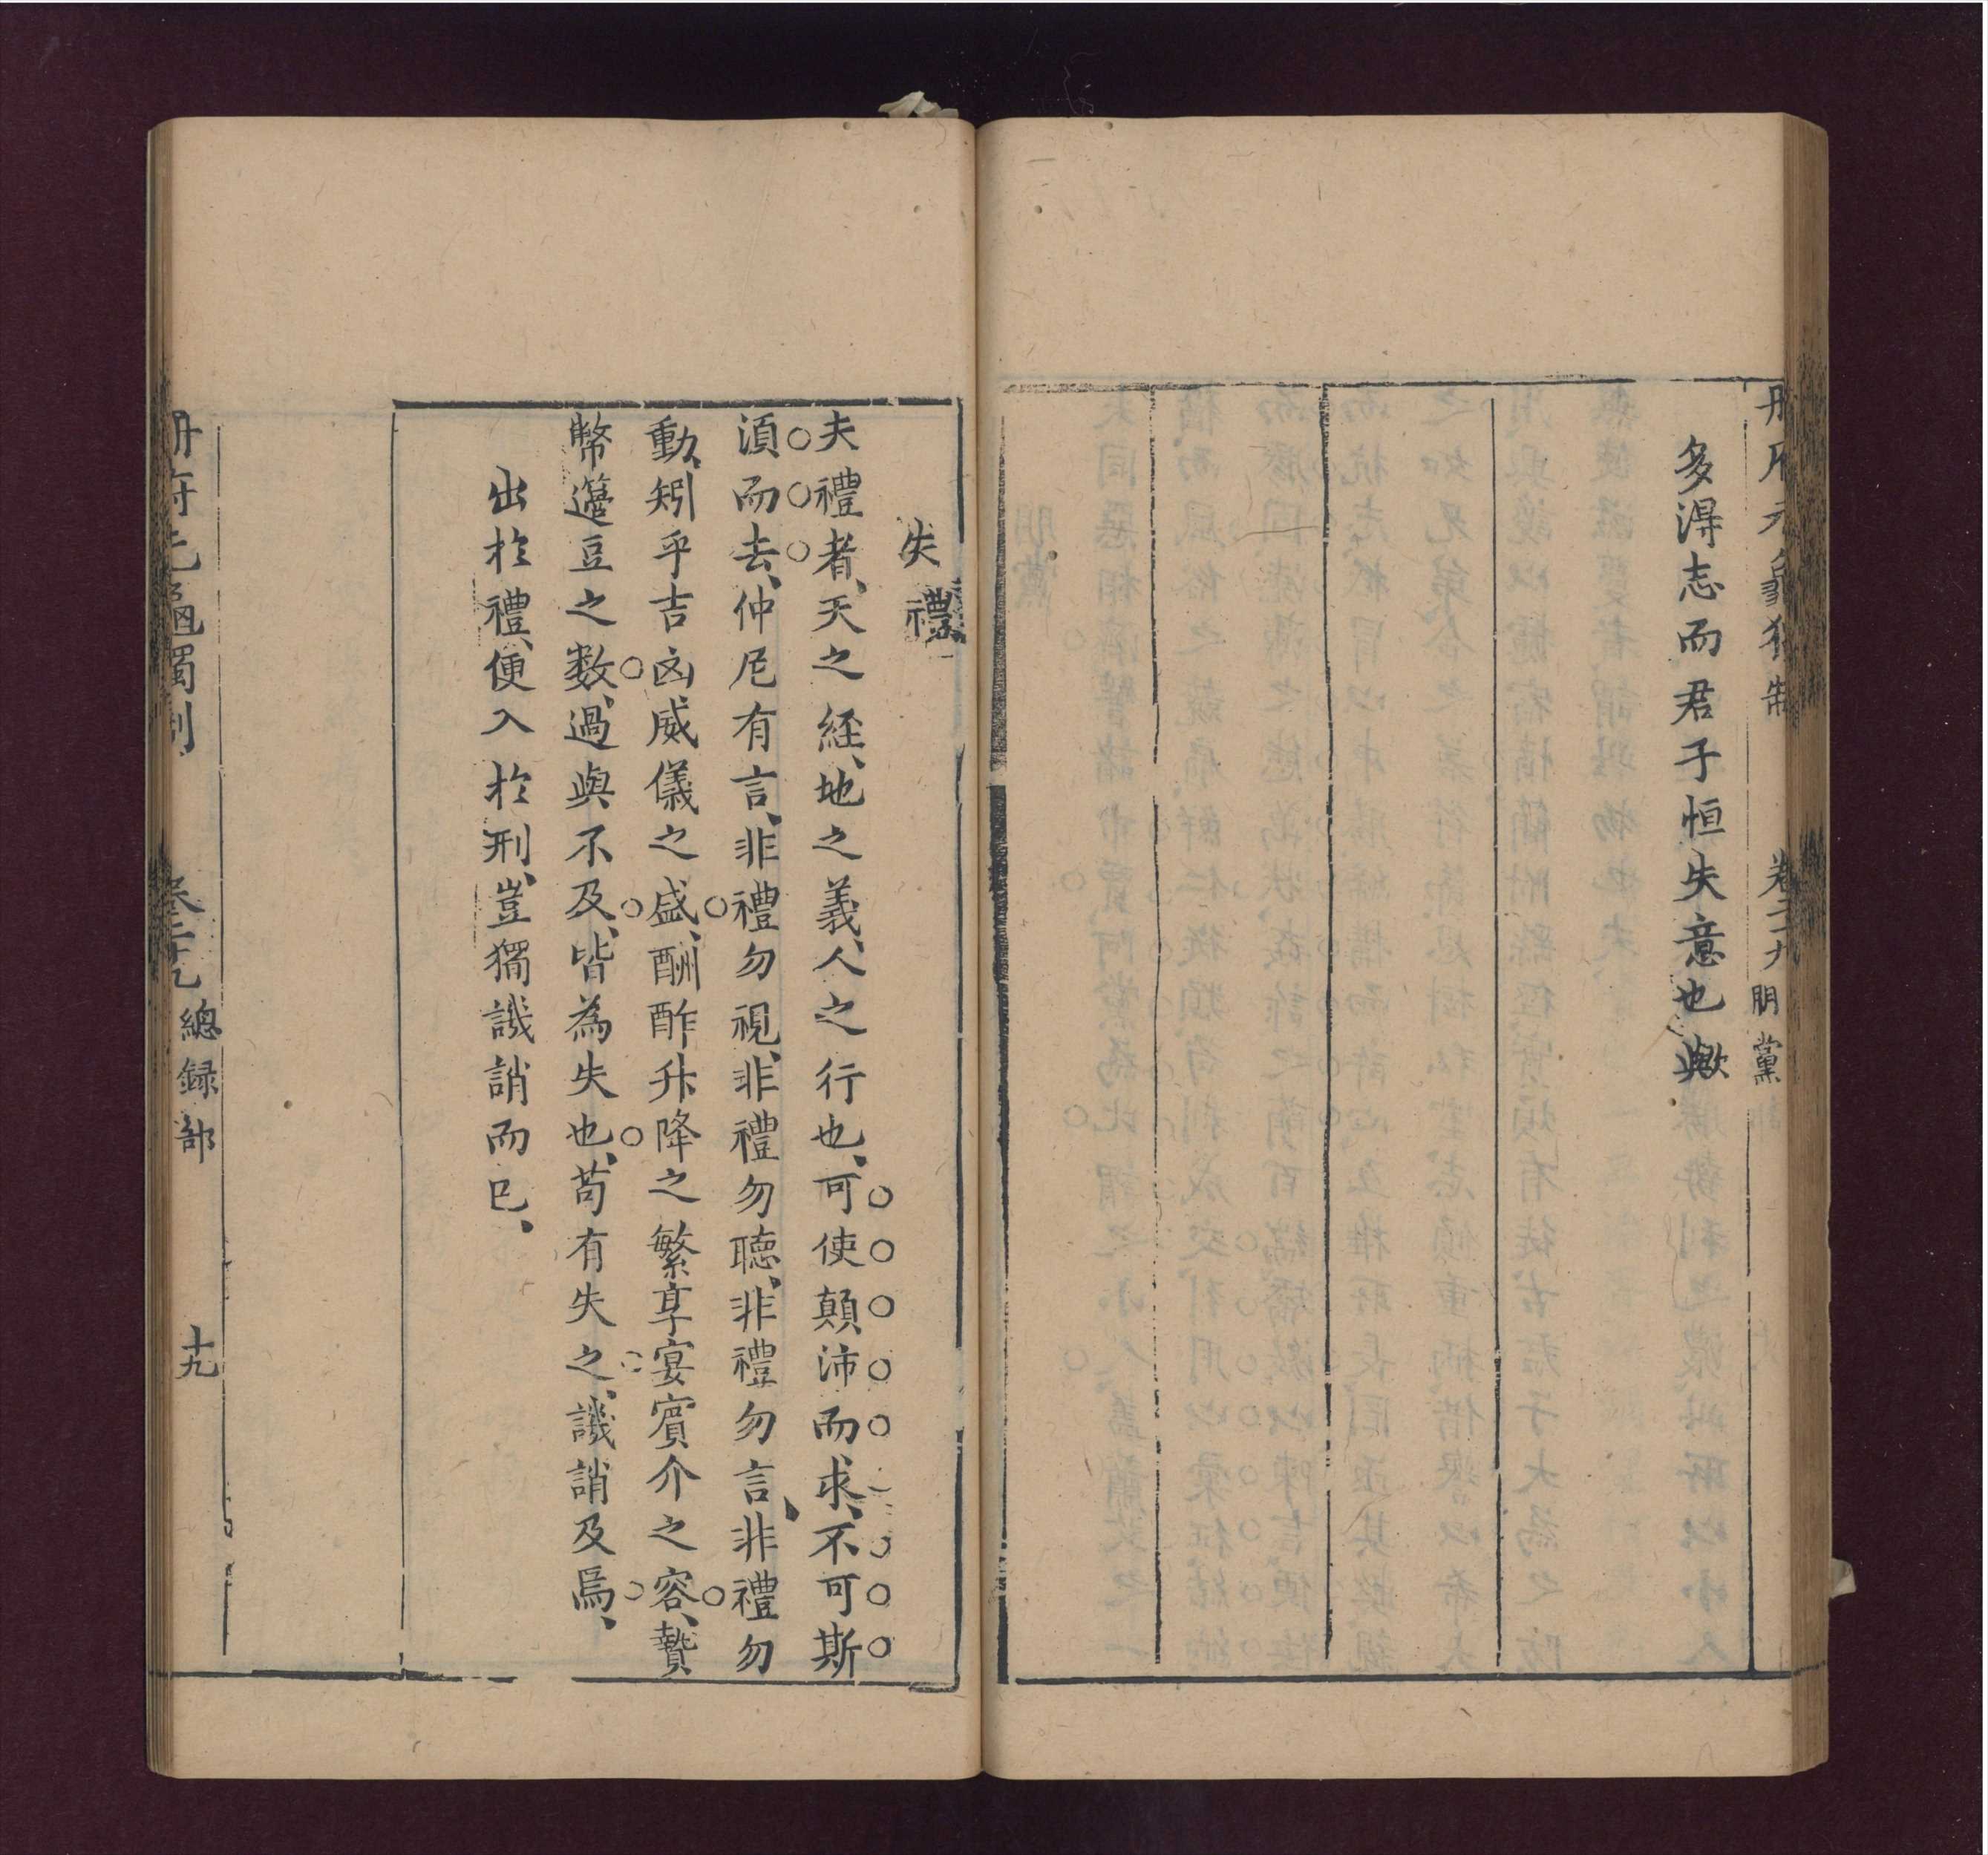 多淂志而君子恒失意也歟
卷二十九 朋黨
失禮
夫禮者、天之經、地之義、人之行也、可使顛沛而求、不可斯
湏而去、仲尼有言、非禮勿視、非禮勿聴、非禮勿言、非禮勿
動、矧乎吉凶威儀之盛、酬酢升降之繁享宴賓介之容、贄
幣籩豆之数、過與不及、皆為失也、苟有失之、譏誚及焉、
出於禮、便入於刑、豈獨譏誚而已、
冊府元龜獨制 卷二十九 總録部 十九